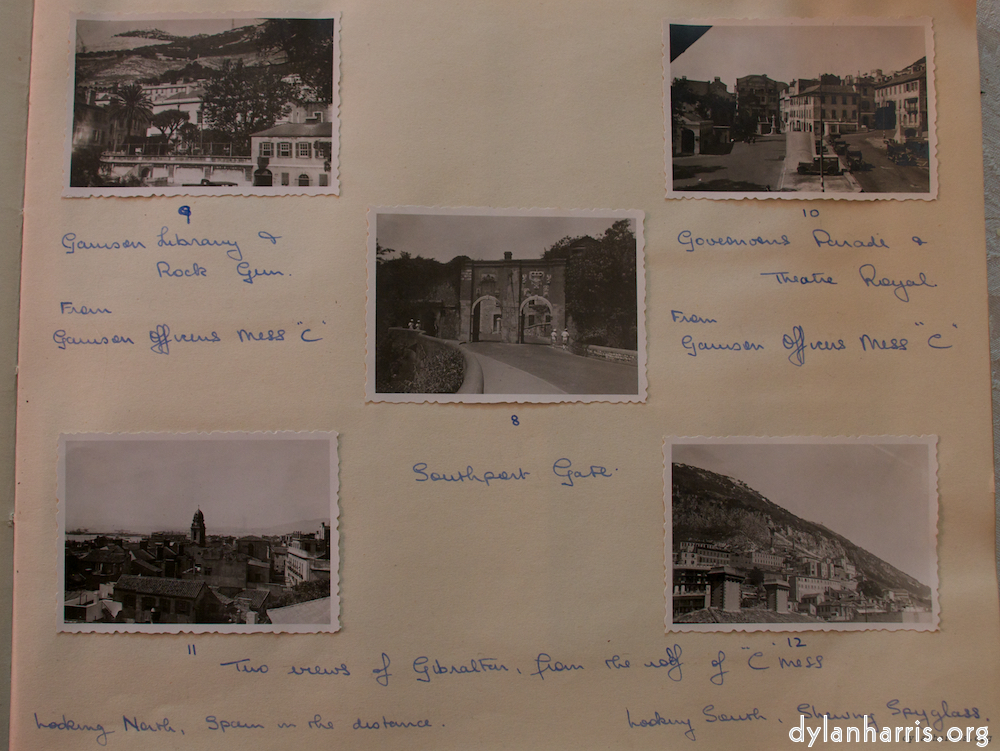 9
Garrison Library &
Rock Gun.
From
Garrison Officers Mess "C"
10
Governors Parade &
Theatre Royal
From
Garrison Officers Mess "C"
8
Southport Gate.
11
12
Two views of Gibraltar, from the roof of "C" Mess
Looking North, Spain in the distance.
Looking South, Shewing Spyglass.
dylanharris.org